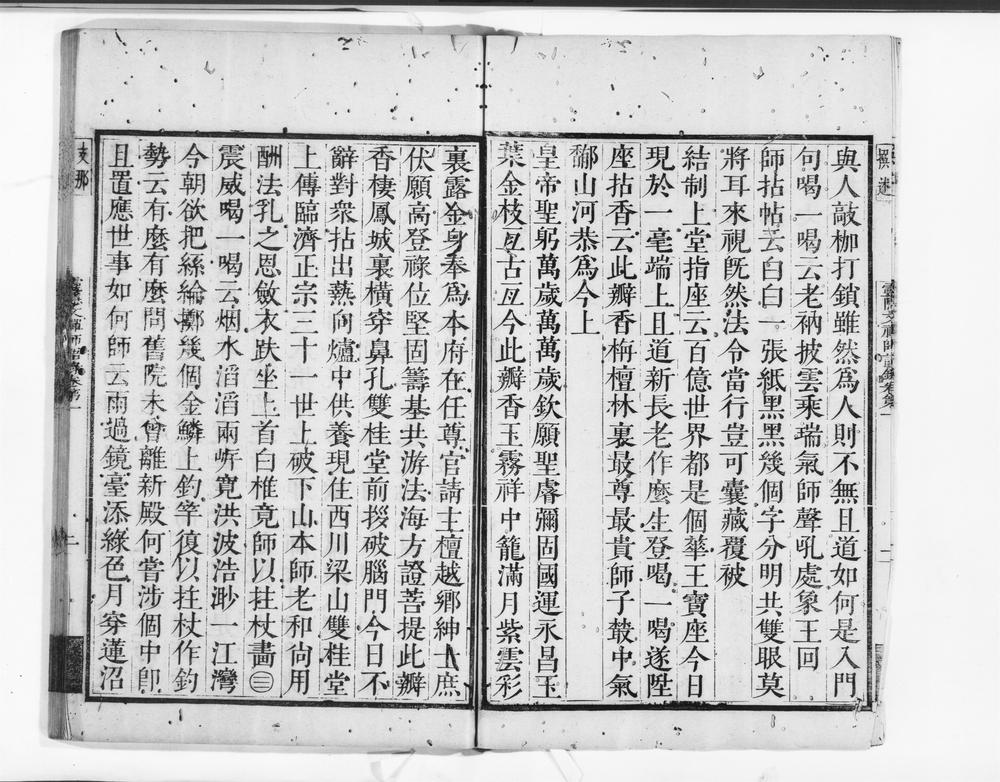 與人敲枷打鎖雖然為人則不無且道如何是入門
句喝一喝云老衲披雲乘瑞氣師聲吼處象王回
師拈帖云白白一張紙黑黑幾個字分明共雙眼莫
將耳來視既然法令當行豈可囊藏覆被
結制上堂指座云百億世界都是個華王寶座今日
現於一毫端上且道新長老作麼生登喝一喝遂陞
座拈香云此瓣香栴檀林裏最尊最貴師子叢中氣
鄙山河恭為今上
皇帝聖躬萬歲萬萬歲欽願聖睿彌固國運永昌玉
葉金枝亙古亙今此瓣香玉霧祥中籠滿月紫雲彩
裏露金身奉為本府在任尊官請主檀越鄉紳士庶
伏願高登祿位堅固籌基共游法海方證菩提此瓣
香棲鳳城裏橫穿鼻孔雙桂堂前拶破腦門今日不
辭對衆拈出爇向爐中供養現住西川梁山雙桂堂
上傳臨濟正宗三十一世上破下山本師老和尚用
酬法乳之恩斂衣趺坐上首白椎竟師以拄杖畵㊂
震威喝一喝云烟水滔滔兩岍寬洪波浩渺一江灣
今朝欲把絲綸擲幾個金鱗上釣竿復以拄杖作釣
勢云有麼有麼問舊院未曾離新殿何嘗涉個中卽
且置應世事如何師云雨過鏡臺添綠色月穿蓮沼
支那